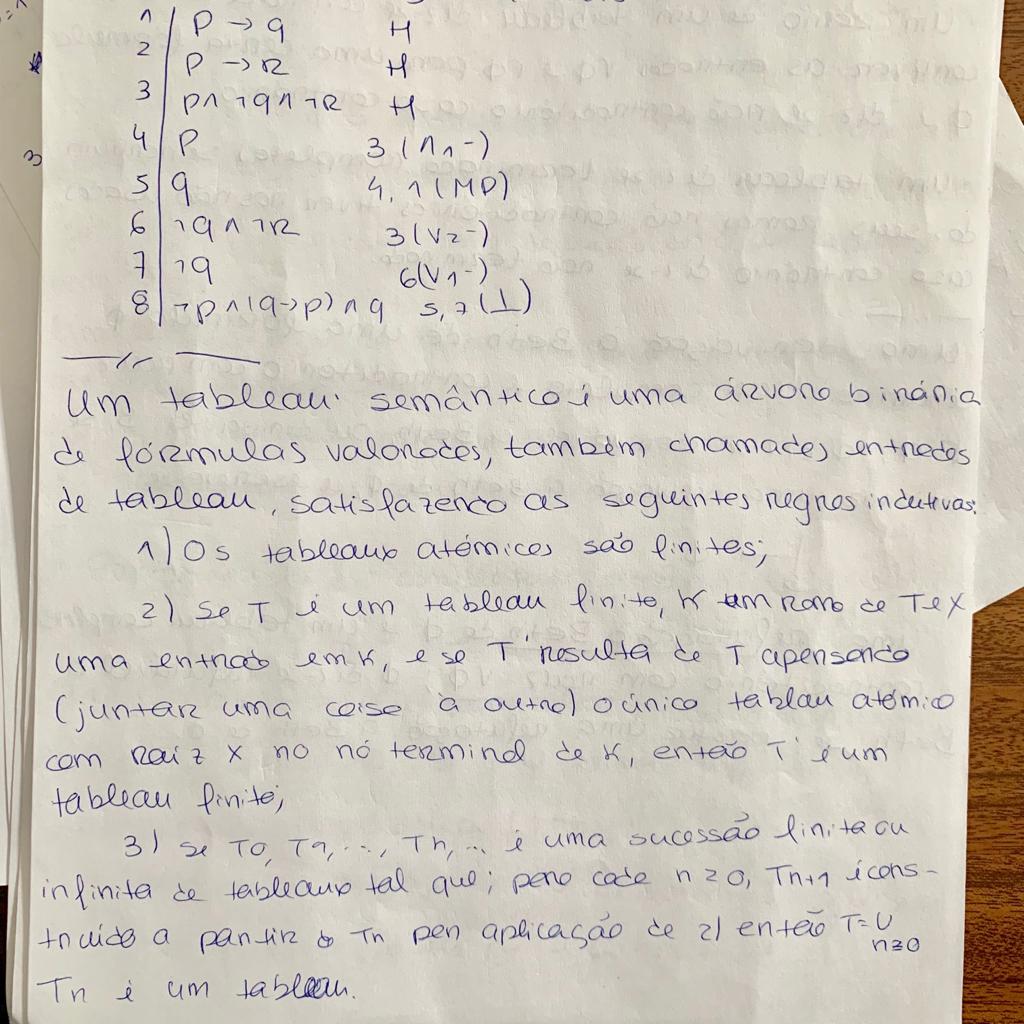 1 P → q H
2 P → R H
3 P ∧ ¬q ∧ ¬R H
4 P 3 (∧1-)
5 q 4, 1 (MP)
6 ¬q ∧ ¬R 3 (V2-)
7 ¬q 6 (V1-)
8 ¬p ∧ (q → p) ∧ q 5, 7 (⊥)
Um tableau semântico é uma árvore binária
de fórmulas valoradas, também chamadas entradas
de tableau, satisfazendo as seguintes regras indutivas:
1) Os tableaux atómicos são finitos;
2) se T é um tableau finito, K um ramo de T e X
uma entrada em K, e se T' resulta de T apensando
(juntar uma coisa à outra) o único tablau atómico
com raiz X no nó terminal de K, então T' é um
tableau finito;
3) se T0, T1, ..., Tn, ... é uma sucessão finita ou
infinita de tableaux tal que; para cada n ≥ 0, Tn+1 é cons-
truído a partir de Tn por aplicação de 2) então T = ∪ n≥0
Tn é um tableau.